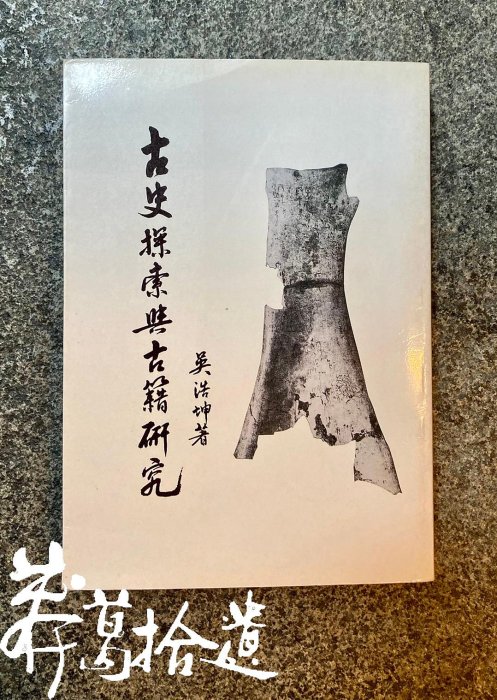 古史探索與古籍研究
吳浩坤著
莽葛拾遺